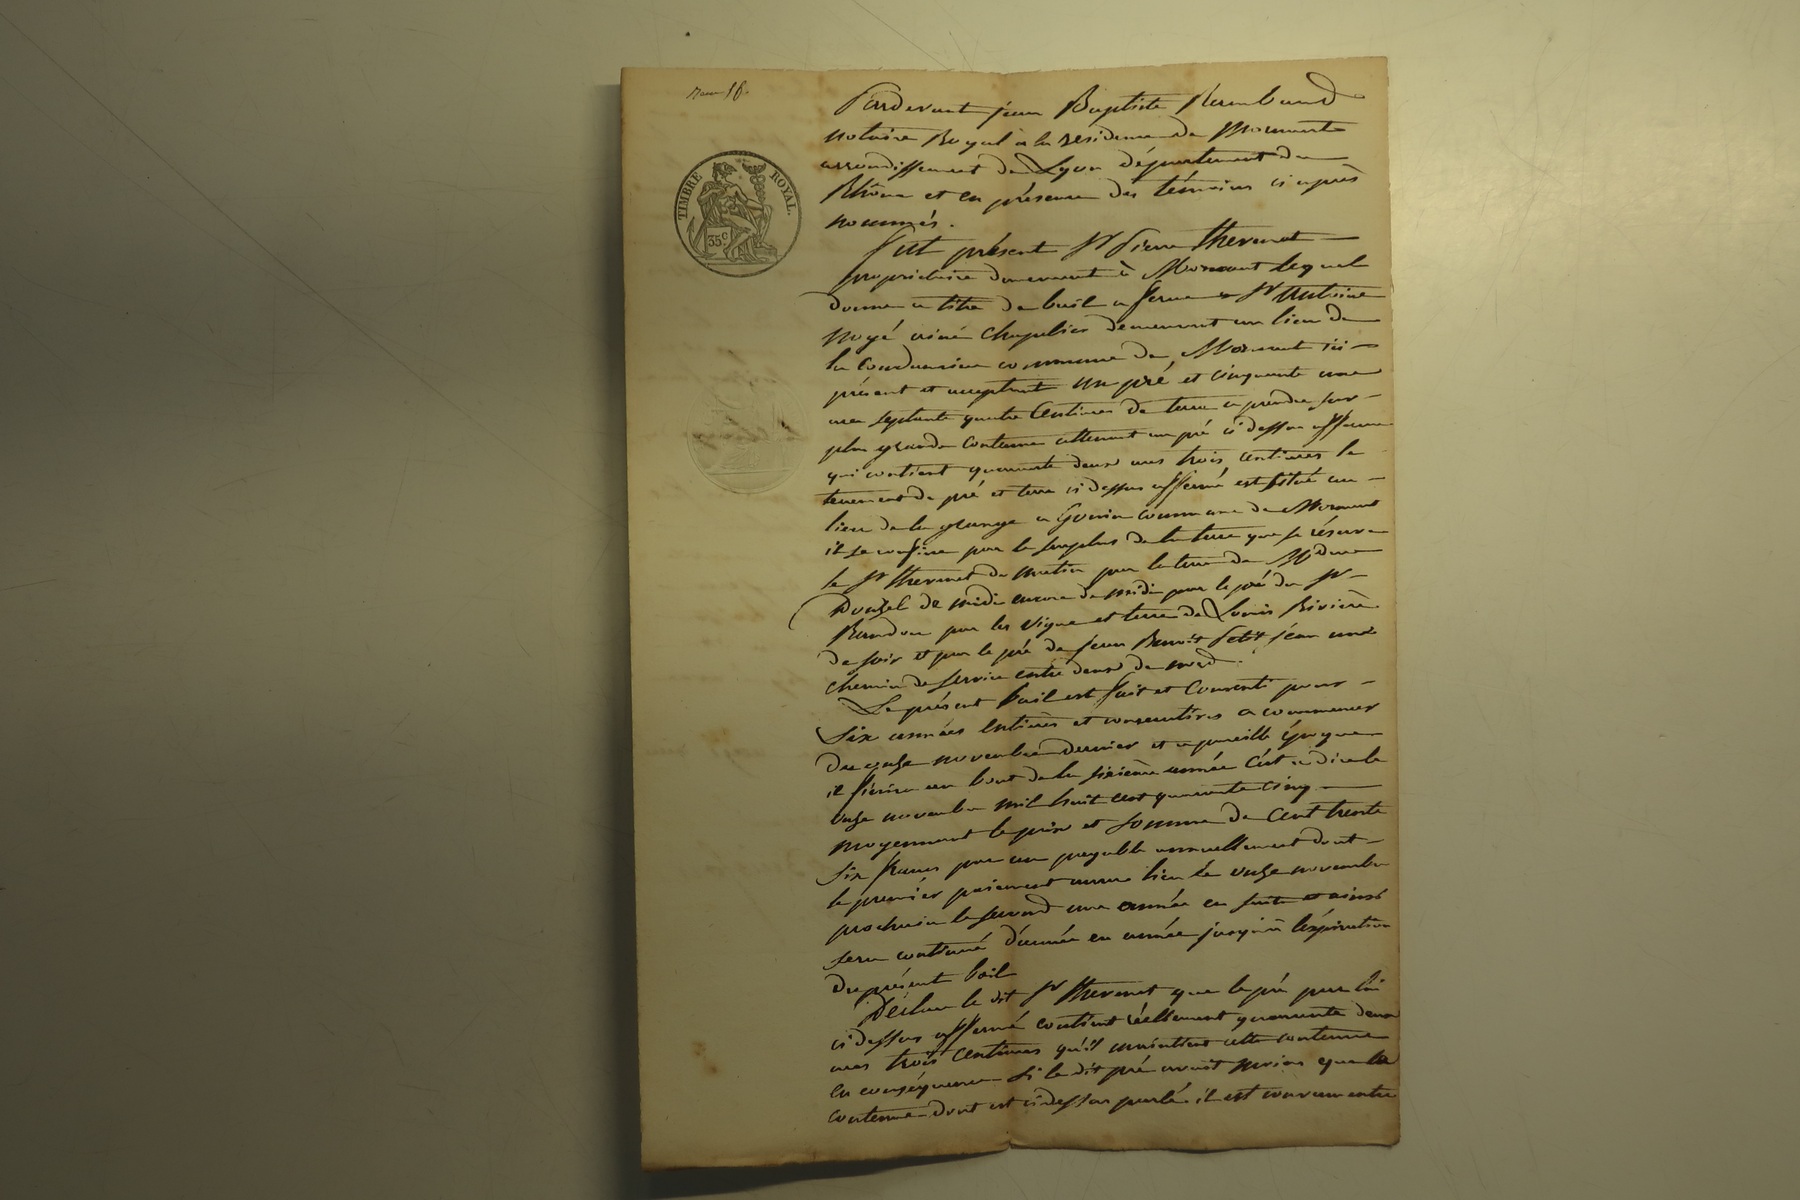 TIMBRE ROYAL.
35c
Pardevant jean Baptiste Rambaud
notaire Royal à la résidence de Mornant
arrondissement de Lyon département du
Rhône et en présence des témoins ci après
nommés.
fut présent Sr Pierre thevenet
propriétaire demeurant à Mornant lequel
donne a titre de bail a ferme a Sr Antoine
ainé Chapelier demeurant au lieu de
la commune de Mornant ici
présent et acceptant un pré et cinquante une
ares septante quatre Centiares de terre a prendre sur
plus grande Contenue attenant au pré ci dessus affermé
qui contient quarante deux ares trois centiares le
tenement de pré et terre ci dessus affermé est situé au
lieu de la grange a commune de Mornant
il se confine par le surplus de la terre que se réserve
le Sr thevenet de matin par la terre de Mdme
de midi encore de midi par le pré du Sr
par les vigne et terre de Louis Rivière
de soir et par le pré de jean Benoit Petit jean une
chemin de service entre deux de nord.
Le présent bail est fait et Consenti pour
Six années entières et consecutives a commencer
du onze novembre dernier et a pareille époque
il finira au bout de la sixième année C'est a dire le
onze novembre mil huit cent quarante cinq
moyennant le prix et somme de Cent trente
six francs par an payable annuellement dont
le premier paiement aura lieu le onze novembre
prochain le second une année en suite et ainsi
sera continué d'année en année jusqu'à l'éxpiration
du présent bail
Déclare le dit Sr thevenet que le pré par lui
ci dessus affermé contient réellement quarante deux
ares trois Centiares qu'il maintient cette contenue
en conséquence si le dit pré avait moins que la
contenue dont est ci dessus parlé il est convenu entre